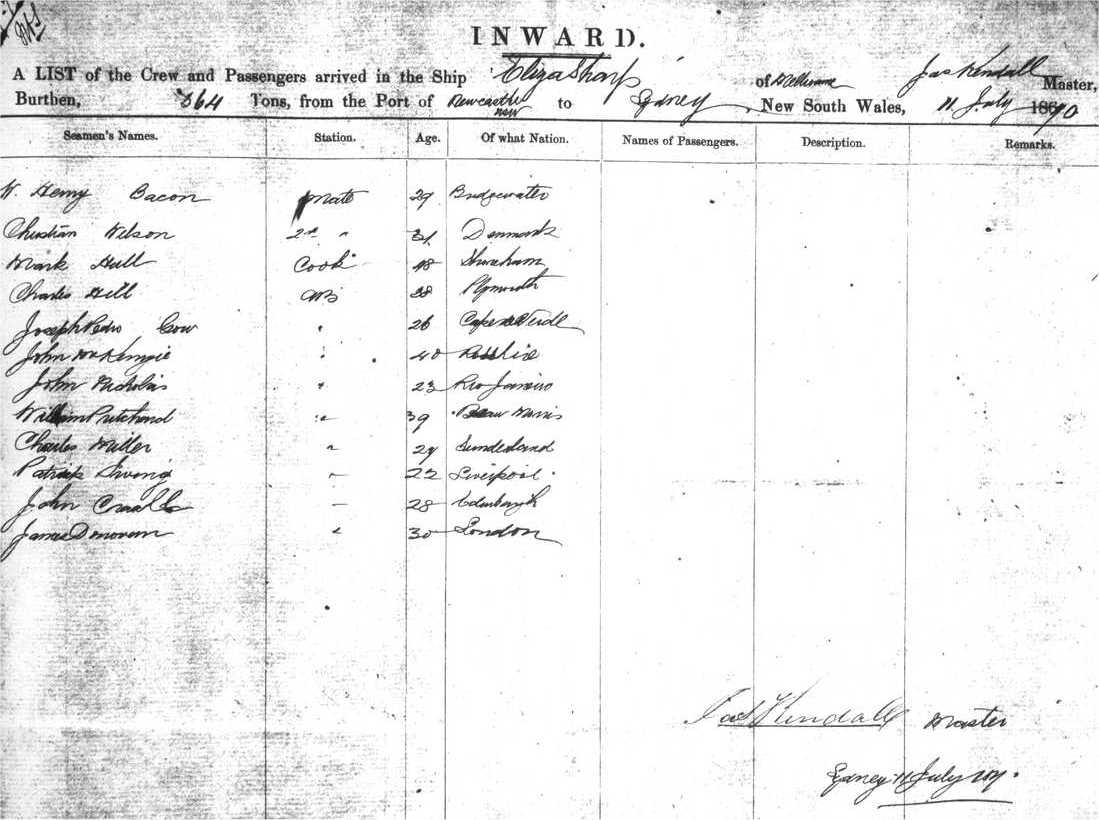 INWARD.
A LIST of the Crew and Passengers arrived in the Ship Eliza Sharp of Melbourne Jas Kendall Master,
Burthen, 364 Tons, from the Port of Newcastle NSW to Sydney, New South Wales, 11 July 1870
Seamen's Names. Station. Age. Of what Nation. Names of Passengers. Description. Remarks.
W. Henry Bacon Mate 29 Bridgewater
Christian Nilson 2nd " 31 Denmark
Mark Hull Cook 48 Shoreham
Charles Hill AB 38 Plymouth
Joseph Pedro 26 Cape de Verde
John McKenzie " 40
John Nicholas " 23 Rio Janeiro
William Pritchard " 39 Beaumaris
Charles Miller " 29 Sunderland
Patrick Irving " 22 Liverpool
John 28 Edinburgh
James Donovan " 30 London
Jas Kendall Master
Sydney 11 July